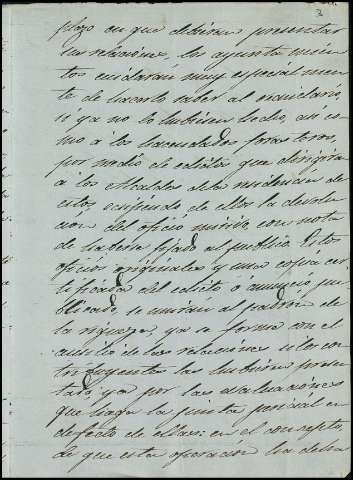 plazo en que deberan presentar
sus relaciones, los ayuntamien
tos cuidarán muy especialmen
te de hacerlo saber al vecindario,
si ya no lo hubiesen hecho, asi co
mo a los hacendados forasteros,
por medio de edictos que dirigiran
a los Alcaldes de la residencia de
estos, exigiendo de ellos la devolu
cion del oficio mismo con nota
de haberse fijado al publico. Estos
oficios originales y una copia cer
tificada del edicto o anuncio pu
blicado, se uniran al padron de
la riqueza, ya se forme con el
auxilio de las relaciones si los con
tribuyentes las hubieren presen
tado, ya por las evaluaciones
que haga la junta pericial en
defecto de ellas: en el concepto,
de que esta operacion ha deber